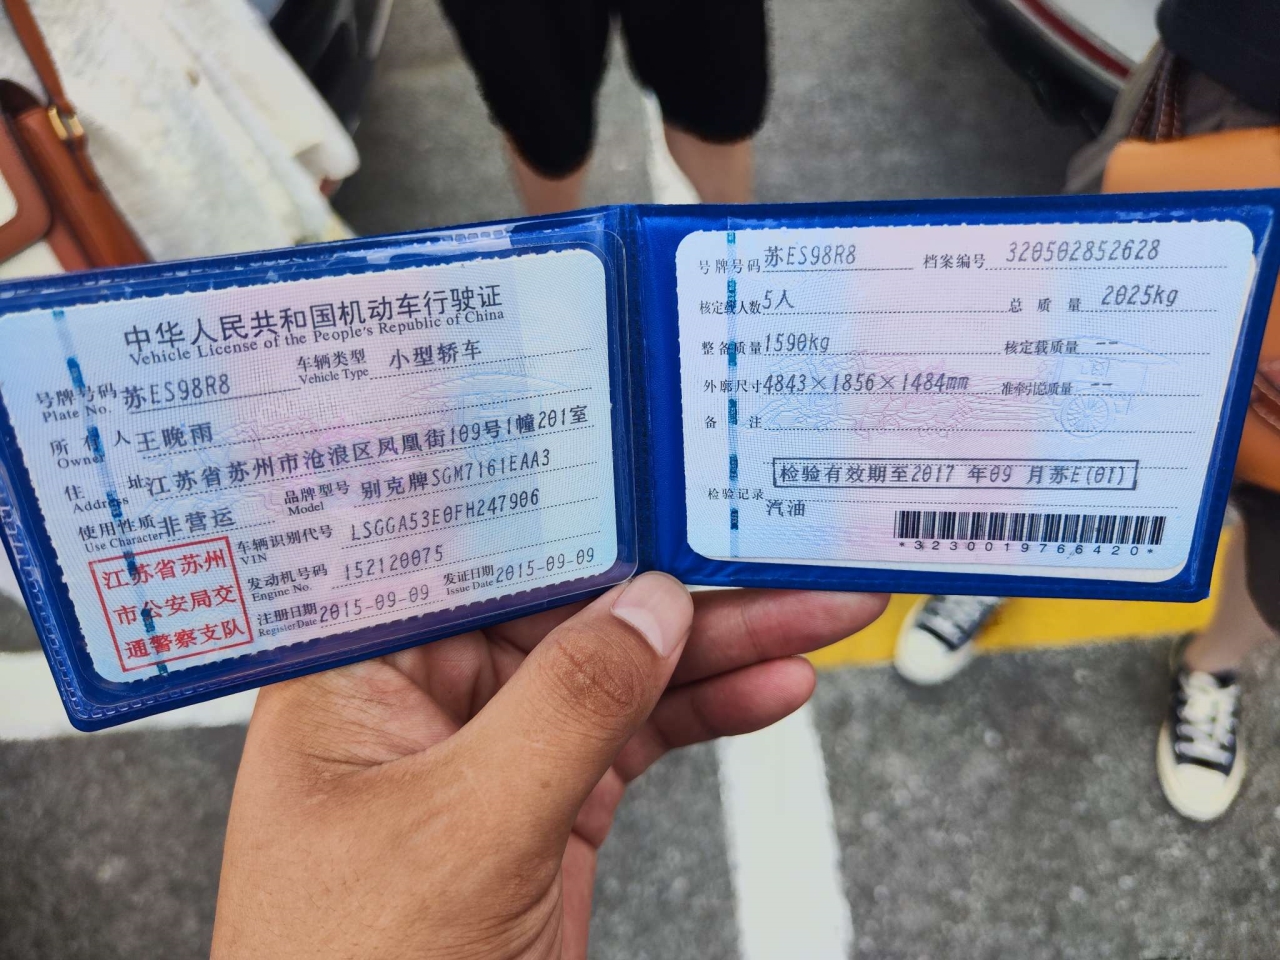 中华人民共和国机动车行驶证
Vehicle License of the People's Republic of China
号牌号码 苏ES98R8 车辆类型 小型轿车
Plate No. Vehicle Type
所有人 王晚雨
Owner
住址 江苏省苏州市沧浪区凤凰街109号1幢201室
Address
使用性质 非营运 品牌型号 别克牌SGM7161EAA3
Use Character Model
江苏省苏州
市公安局交
通警察支队
车辆识别代号 LSGGA53E0FH247906
VIN
发动机号码 152120075
Engine No.
注册日期 2015-09-09 发证日期 2015-09-09
Register Date Issue Date
号牌号码 苏ES98R8 档案编号 320502852628
核定载人数 5人 总质量 2025kg
整备质量 1590kg 核定载质量 --
外廓尺寸 4843×1856×1484mm 准牵引总质量 --
备注
检验有效期至2017 年09 月苏E(01)
检验记录
汽油
*3230019766420*